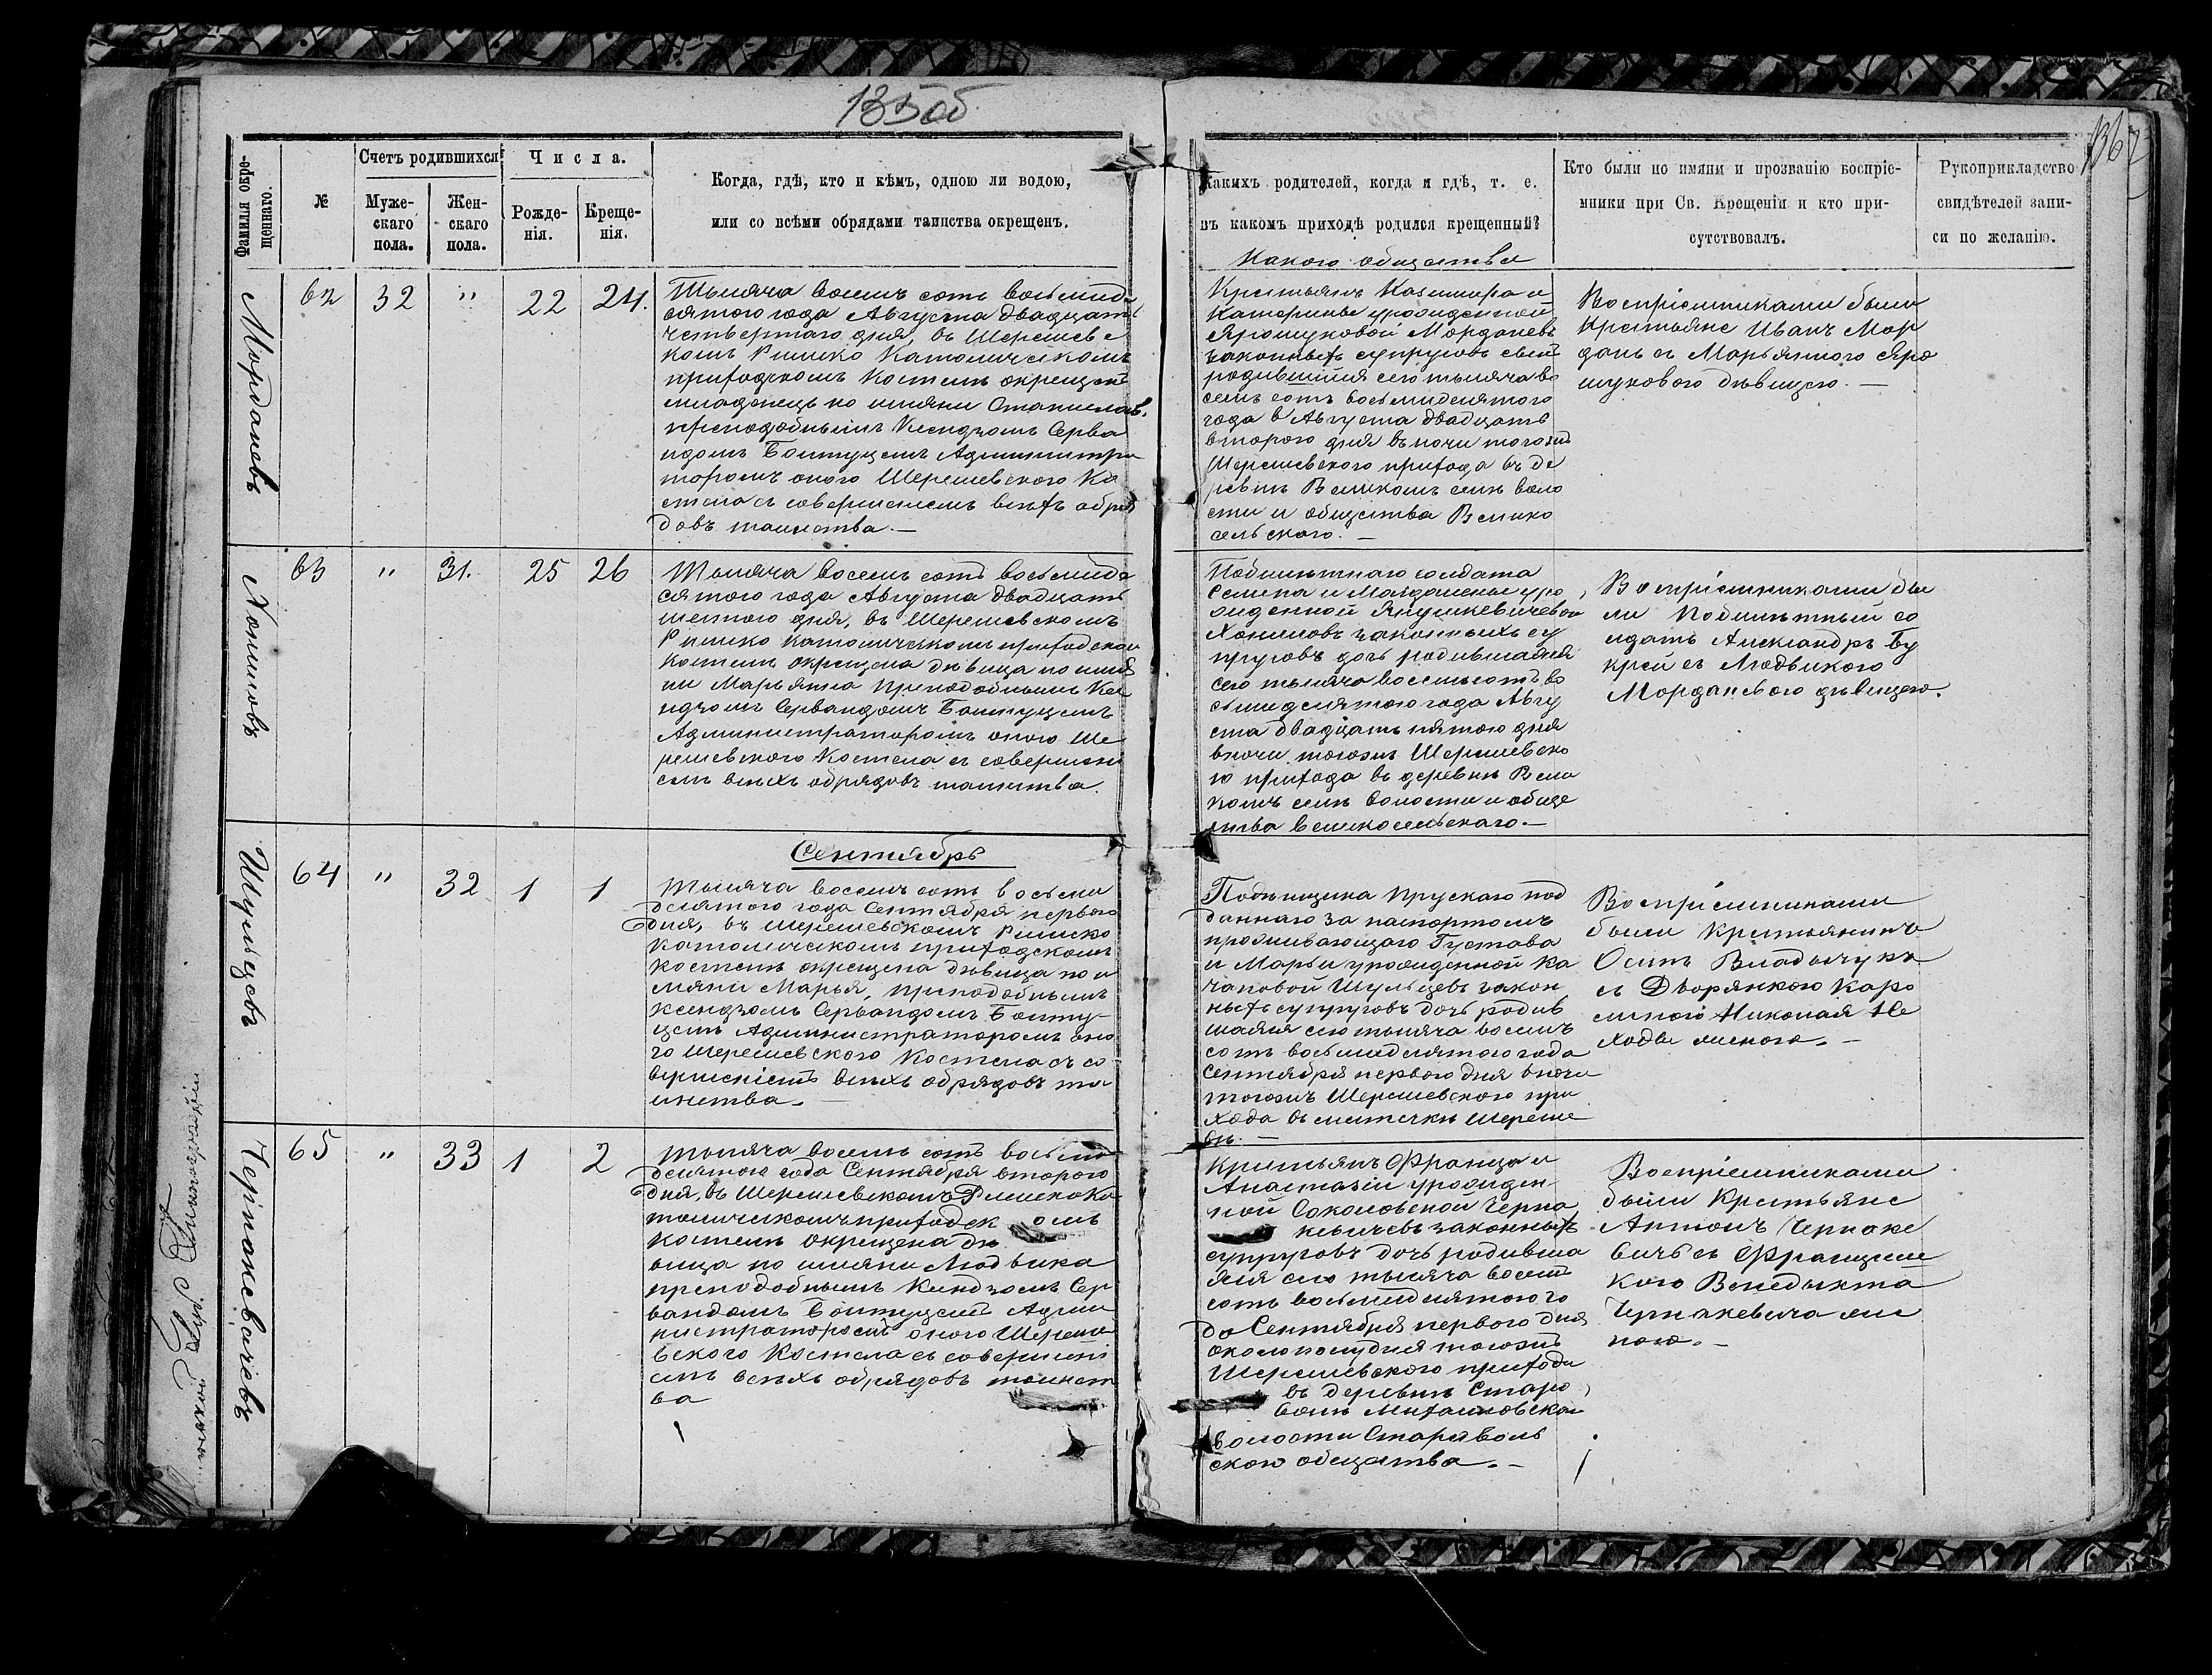 135об
136
Фамилія окре-
щеннаго.
№
Счетъ родившихся
Муже-
скаго
пола.
Жен-
скаго
пола.
Числа.
Рожде-
нія.
Креще-
нія.
Когда, гдѣ, кто и кѣмъ, одною ли водою,
или со всѣми обрядами таинства окрещенъ.
Какихъ родителей, когда и гдѣ, т. е.
въ какомъ приходѣ родился крещенный?
Какого общества
Кто были по имяни и прозванію воспріе-
мники при Св. Крещеніи и кто при-
сутствовалъ.
Рукоприкладство
свидѣтелей запи-
си по желанію.
Морданевъ
62
32
"
22
24.
Тысяча восемь сотъ восьмиде
сятого года Августа двадцать
четвертаго дня, въ Шерешевс
комъ Римско Католическомъ
приходскомъ Костелѣ окрещенъ
младенецъ по имяни Станиславъ
преподобнымъ Ксендзомъ Серва
ндомъ Болтуцемъ Администра
торомъ оного Шерешевского Ко
стела съ совершенiемъ всѣхъ обря
довъ таинства. —
Крестьянъ Казимира и
Катерины урожденной
Ярошуковой Морданевъ
законныхъ супруговъ сынъ
родившiйся сего тысяча во
семь сотъ восьмидесятого
года Августа двадцать
второго дня въ ночи тогожъ
Шерешевского прихода въ де
ревнѣ Великомъ селѣ воло
сти и общества Велико
сельского. —
Воспріемниками были
Крестьяне Иванъ Мор
дань съ Марьянною Яро
шуковою дѣвицею. —
Хониловъ
63
"
31.
25
26
Тысяча восемь сотъ восьмиде
сятого года Августа двадцать
шестого дня, въ Шерешевскомъ
Римско Католическомъ приходскомъ
Костелѣ окрещена дѣвица по имя
ни Марьянна преподобнымъ Ксе
ндзомъ Сервандомъ Болтуцемъ
Администраторомъ оного Ше
решевского Костела съ совершенi
емъ всѣхъ обрядовъ таинства.
солдата
и Магдалены уро
жденной Янушкевичевой
Хониловъ законныхъ су
пруговъ дочь родившаяся
сего тысяча восемьсотъ во
сьмидесятого года Авгу
ста двадцать пятого дня
въ ночи тогожъ Шерешевско
го прихода въ деревнѣ Вели
комъ селѣ волости и обще
ства Великосельскаго. —
Воспріемниками бы
ли со
лдатъ Александръ Бу
крей съ Людвикою
Морданевою дѣвицею.
Шульцевъ
64
"
32
1
1
Сентябрь
Тысяча восемь сотъ восьми
десятого года Сентября первого
дня, въ Шерешевскомъ Римско
Католическомъ приходскомъ
Костелѣ окрещена дѣвица по и
мяни Марья, преподобнымъ
Ксендзомъ Сервандомъ Болту-
цемъ Администраторомъ оно
го Шерешевского Костела съ со
вершенiемъ всѣхъ обрядовъ та
инства. —
Прускаго под
даннаго за паспортомъ
проживающаго Густава
и Марьи урожденной Ка
чановой Шульцевъ закон
ныхъ супруговъ дочь родив
шаяся сего тысяча восемь
сотъ восьмидесятого года
Сентября первого дня въ ночи
тогожъ Шерешевского при
хода въ мѣстечкѣ Шереше
вѣ. —
Воспріемниками
были Крестьянинъ
Осипъ Владычукъ
съ Дворянкою Каро
линою Николая Не
женою. —
Чернакевичевъ
65
"
33
1
2
Тысяча восемь сотъ восьми
десятого года Сентября второго
дня, въ Шерешевскомъ Римско Ка
толическомъ приходск омъ
Костелѣ окрещена дѣ
вица по имяни Людвика
преподобнымъ Ксендзомъ Сер
вандомъ Болтуцемъ Админ
нистраторомъ оного Шереше
вского Костела съ совершенi
емъ всѣхъ обрядовъ таинст
ва
Крестьянъ Франца и
Анастазiи урожден
ной Соколовской Черна
кевичевъ законныхъ
супруговъ дочь родивша
яся сего тысяча восемь
сотъ восьмидесятого го
да Сентября первого дня
около полудня тогожъ
Шерешевского прихода
въ деревнѣ Старо
волѣ Михайловской
волости Староволь
ского общества. —
Воспріемниками
были Крестьяне
Антонъ Чернаке
вичъ съ Францишк
кою Венедыкта
Чернакевича же
ною. —